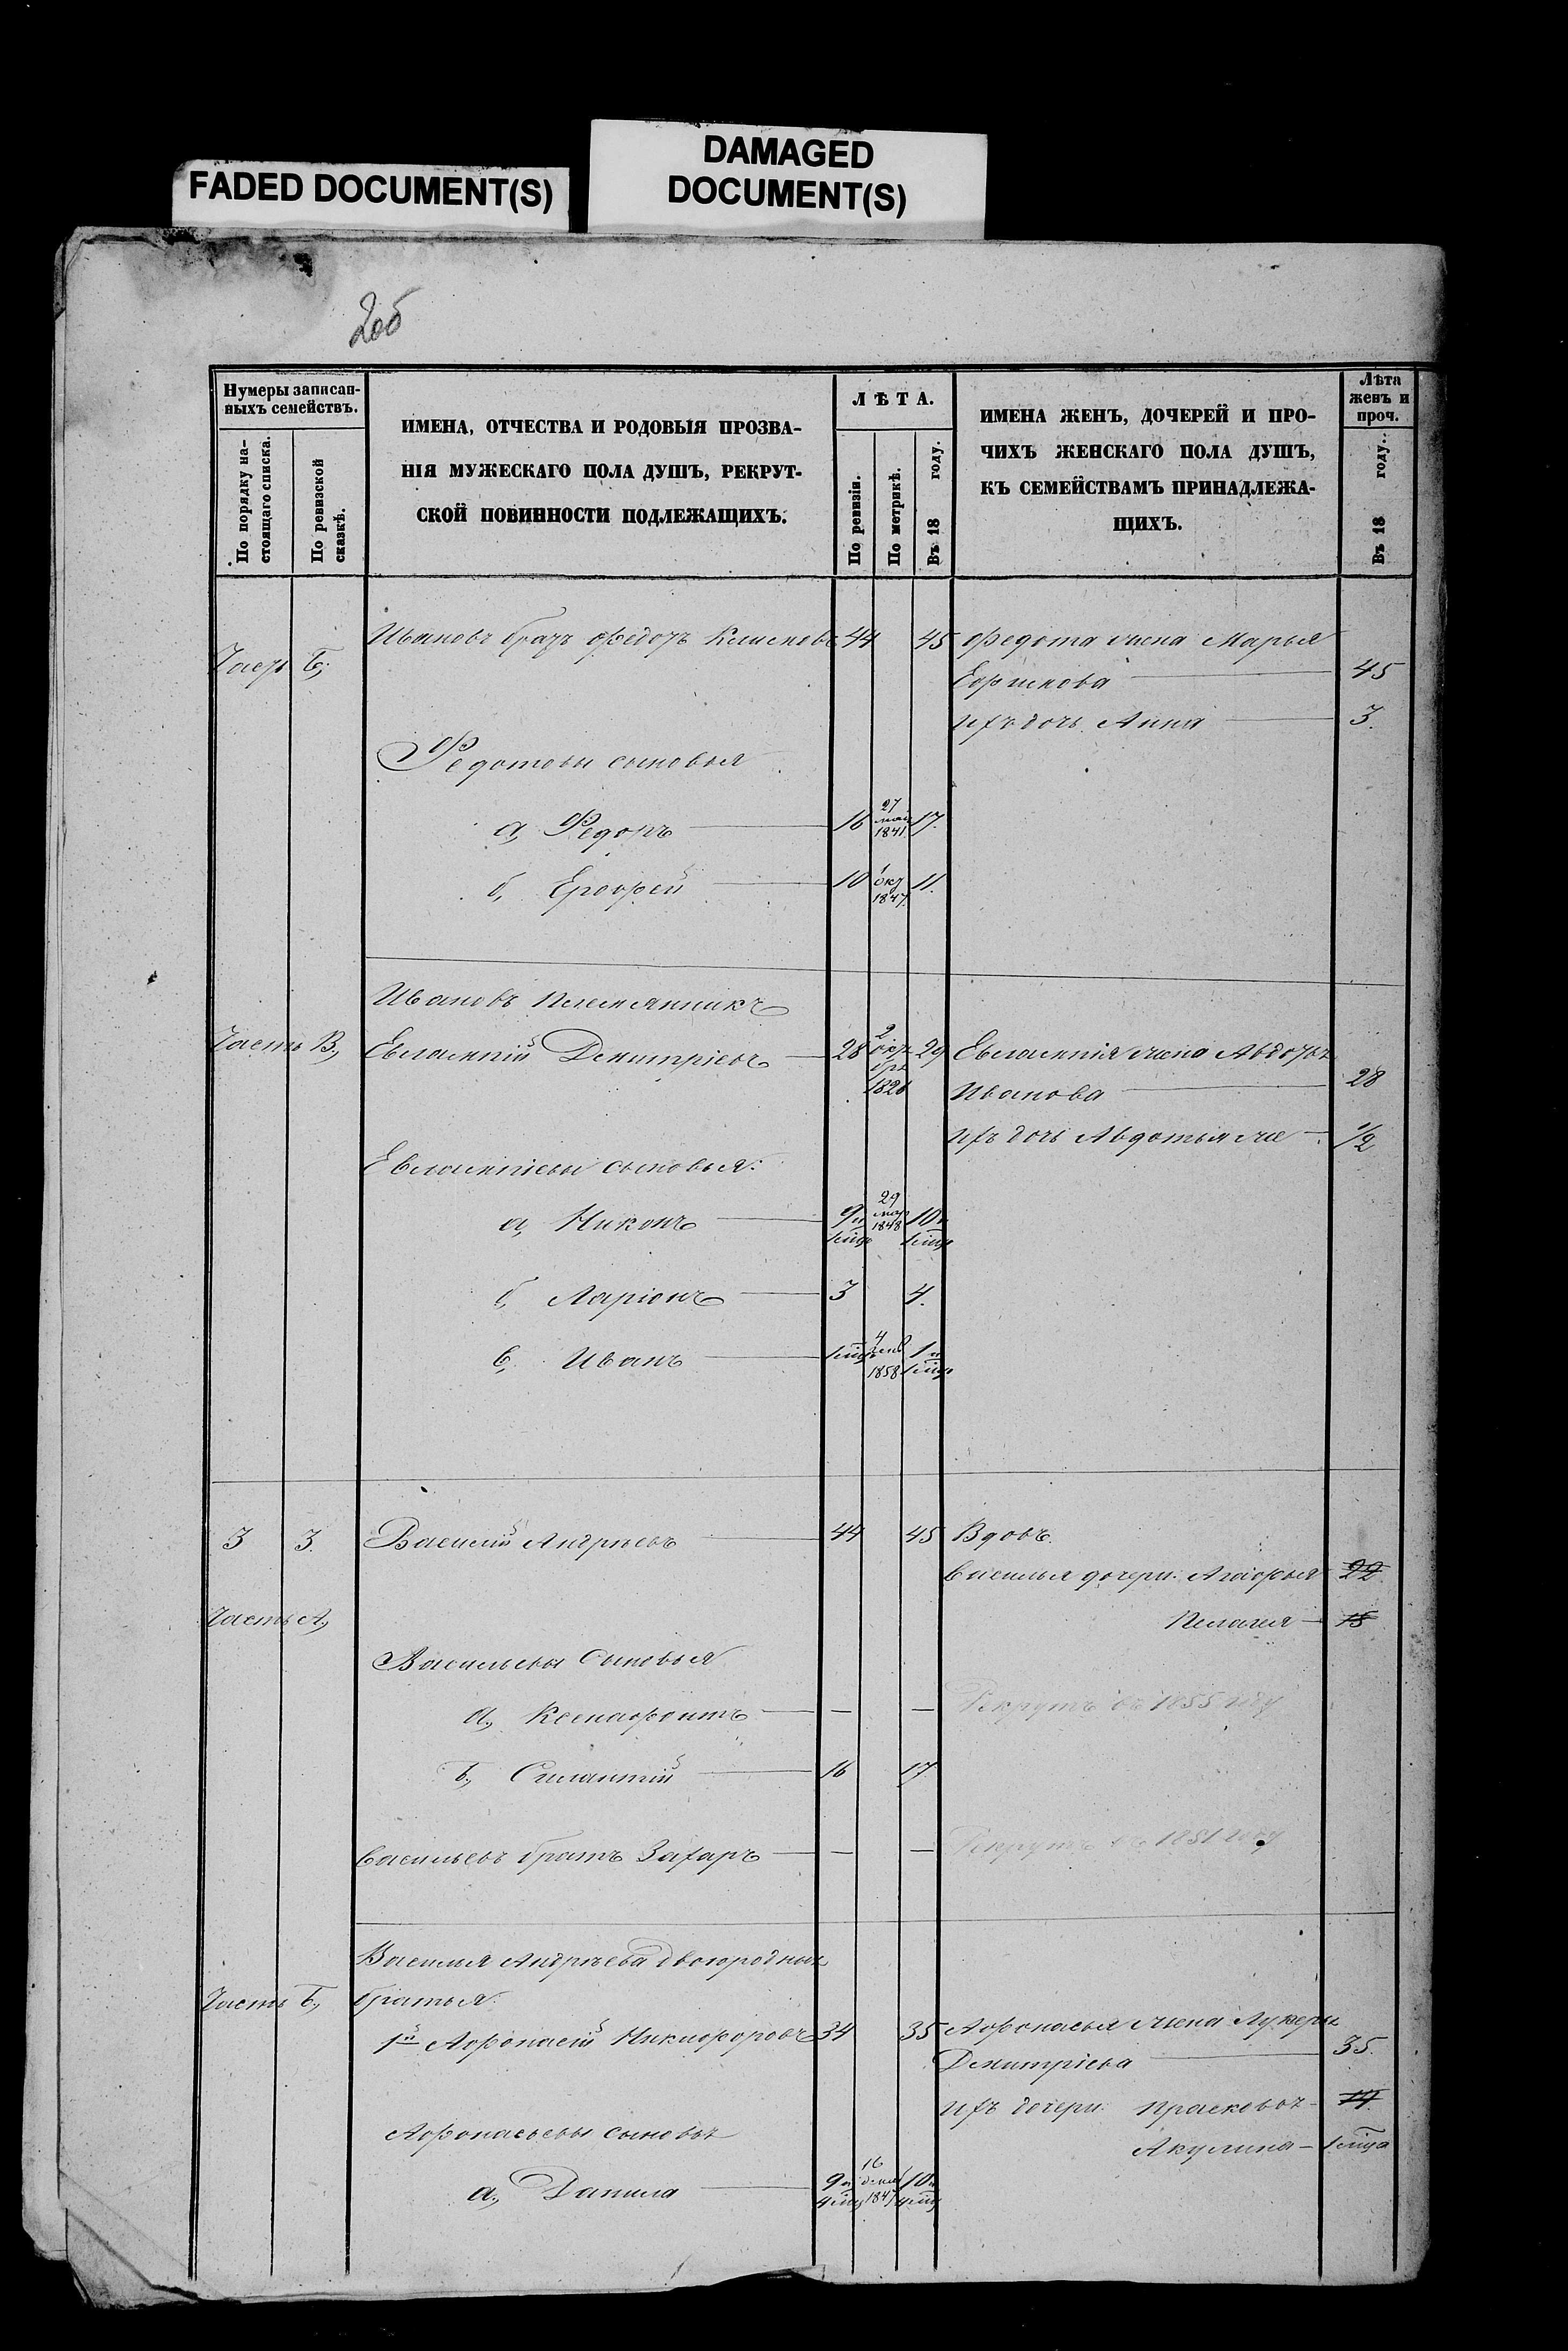 FADED DOCUMENT(S)
DAMAGED
DOCUMENT(S)
2об
Нумеры записан-
ныхъ семействъ.
По порядку на-
стоящаго списка.
По ревизской
сказкѣ.
ИМЕНА, ОТЧЕСТВА И РОДОВЫЯ ПРОЗВА-
НІЯ МУЖЕСКАГО ПОЛА ДУШЪ, РЕКРУТ-
СКОЙ ПОВИННОСТИ ПОДЛЕЖАЩИХЪ.
ЛѢТА.
По ревизіи.
По метрикѣ.
Въ 18 году.
ИМЕНА ЖЕНЪ, ДОЧЕРЕЙ И ПРО-
ЧИХЪ ЖЕНСКАГО ПОЛА ДУШЪ,
КЪ СЕМЕЙСТВАМЪ ПРИНАДЛЕЖА-
ЩИХЪ.
Лѣта
женъ и
проч.
Въ 18 году.
Ивановъ братъ Федотъ 44 45 Федота жена Марья
Часть Б,
Ефимова 45
ихъ дочь Анна 3.
Федотовы сыновья
а, Федоръ 16 27 мая 1841. 17.
б, Ерофей 10 1 окт 1847. 11.
Ивановъ племянникъ
Часть В, Евлампій Дмитріевъ 28 2 29 Евлампія жена Авдотья
Иванова 28
ихъ дочь Авдотья же 1/2
Евлампіевы сыновья:
а, Никонъ 9 и 29 мар 1848 10 и
б, Ларіонъ 3 4.
в, Иванъ 4 1858 1 и
3 3. Василій Андреевъ 44 45 Вдовъ.
Василья дочери: Агафья 22
Часть А,
Пелагея 18
Васильевы сыновья
а, Ксенофонтъ — — Рекрутъ въ 1855 году
б, Силантій 16 17
Васильевъ братъ Захаръ — — Рекрутъ въ 1851 году
Василья Андреева двоюродные
Часть Б, братья:
1й Афонасій Никифоровъ 34 35 Афонасья жена Лукерья
Дмитріева 35.
ихъ дочери: Прасковья 14
Афонасьевы сыновья
Акулина
а, Данила 9 и 16 дек 184 10 и